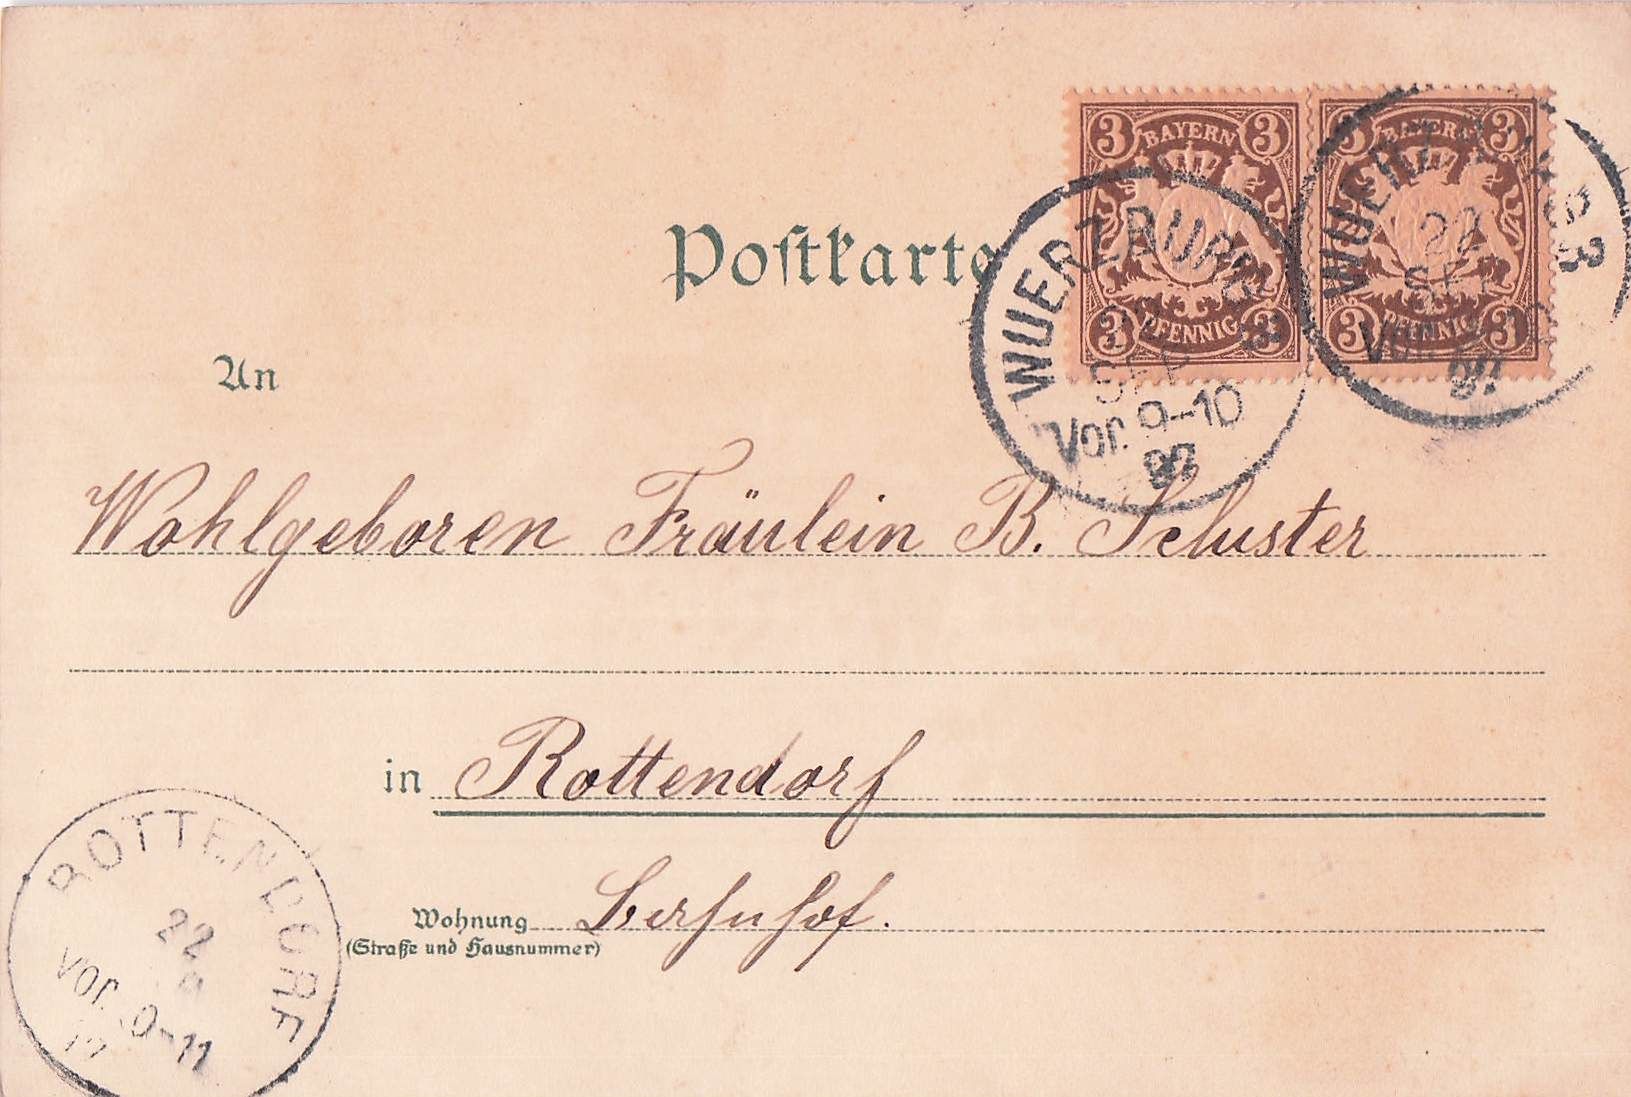 3 BAYERN 3
3 PFENNIG 3
3 BAYERN 3
3 PFENNIG 3
WUERZBURG 3
22
SEP
Vor.
97
WUERZBURG 3
SEP
Vor. 9-10
97
Postkarte
An
Wohlgeboren Fräulein B. Schuster
in Rottendorf
Wohnung Bahnhof.
(Straße und Hausnummer)
ROTTENDORF
22
9
Vor. 10-11